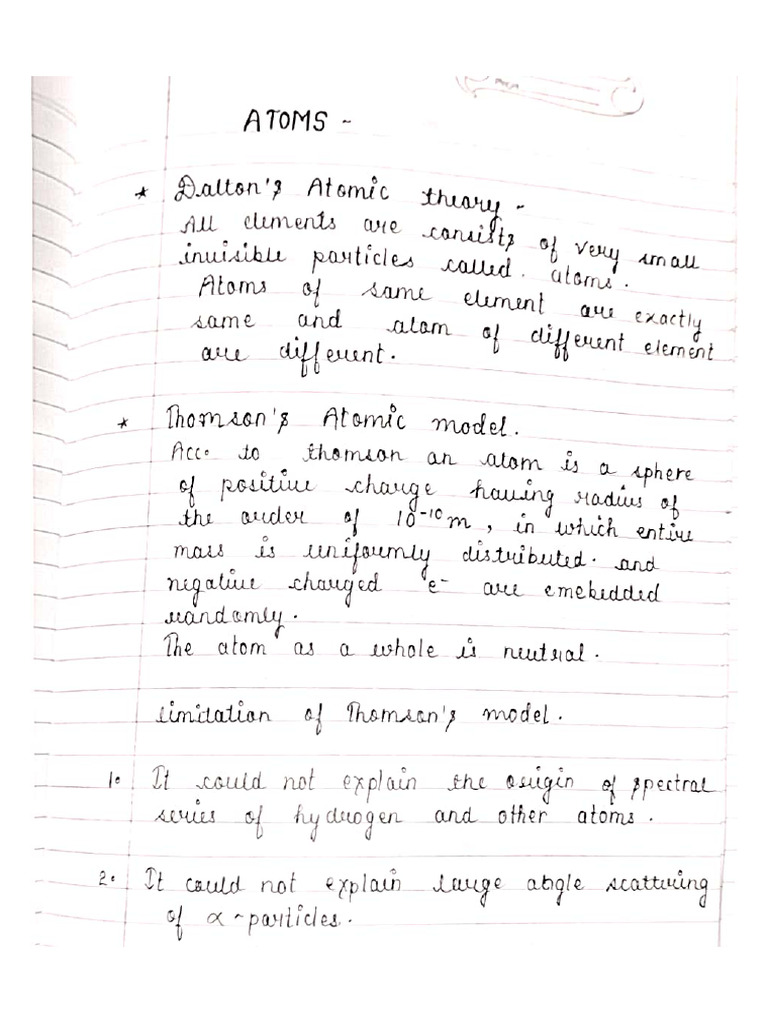 ATOMS -
* Dalton's Atomic theory -
All elements are consists of very small
invisible particles called. atoms.
Atoms of same element are exactly
same and atom of different element
are different.
* Thomson's Atomic model.
Acc. to thomson an atom is a sphere
of positive charge having radius of
the order of 10⁻¹⁰m, in which entire
mass is uniformly distributed. and
negative charged e⁻ are emebedded
randomly.
The atom as a whole is neutral.
limitation of Thomson's model.
1. It could not explain the origin of spectral
series of hydrogen and other atoms.
2. It could not explain large angle scattering
of α-particles.